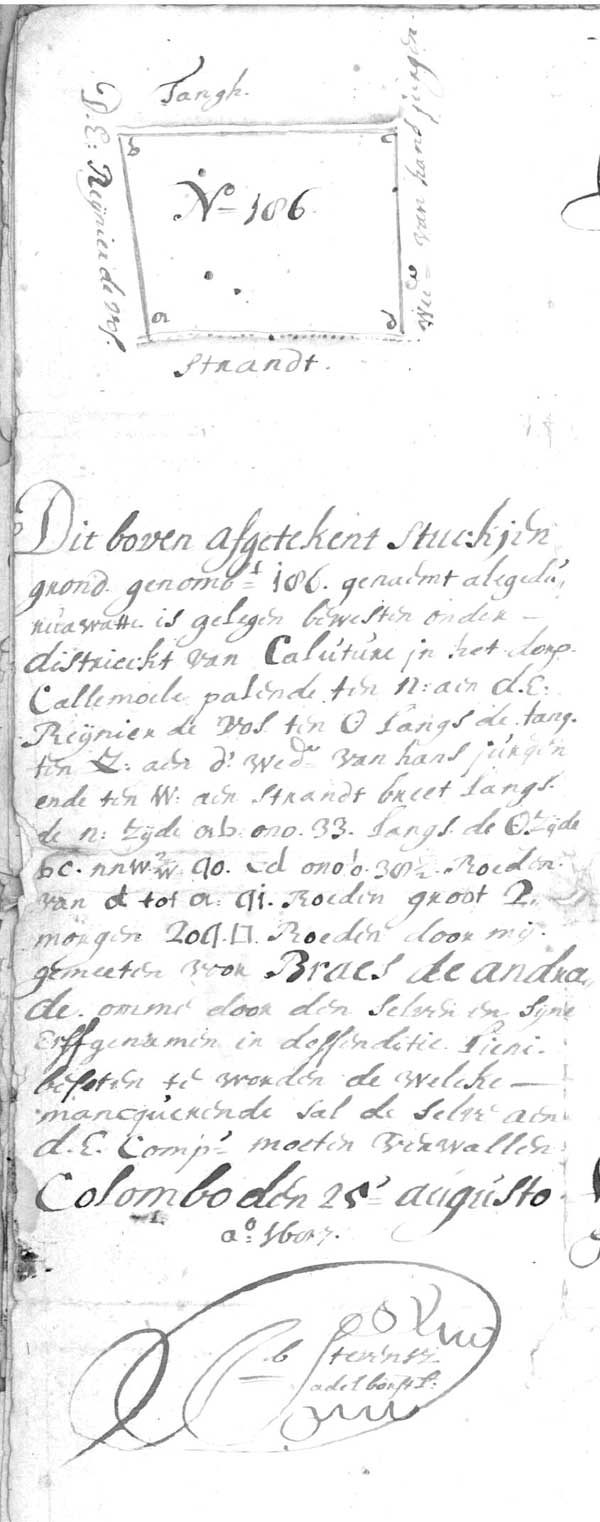 Tangh.
D. E: Reÿnier de Vos.
b
c
Wed.e van hans jurgen.
No 186
a
d
Strandt.
Dit boven afgetekent stuckjen
grond. genomb.t 186. genaemt
is gelegen bewesten onder
district van Caluture jn het dorp
Callemoele palende ten N: aen d. E.
Reÿnier de Vos ten O langs de tang.
ten Z: aen d.' wed.e van hans jurgen
ende ten W: aen Strandt breet langs.
de n: zijde ab: ono. 33. langs de O: zijde
bc. nnw 90. cd 38½. Roeden.
van d tot a: 91. Roeden groot 2.
morgen 209. □. Roeden door mij.
gemeeten voor Braes de andra
de. omme door den selven en sijne
Erffgenamen in
beseten te worden de welcke
mancquerende sal de selve aen
d. E. Comp.e moeten vervallen
Colombo den 25.' augusto
a.o